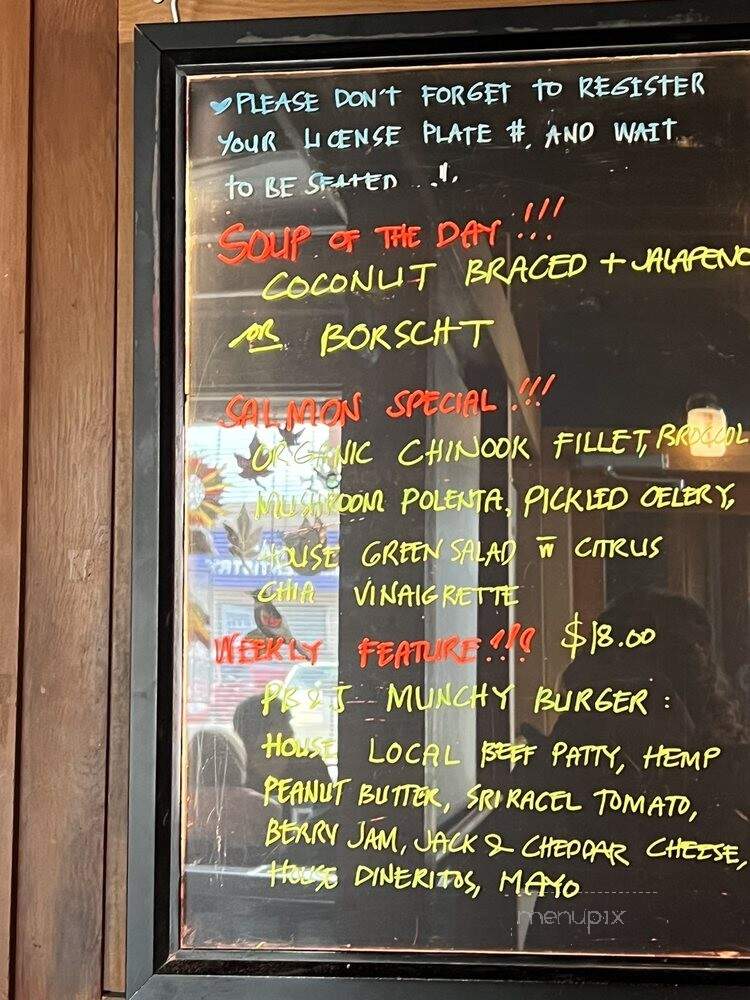 PLEASE DON'T FORGET TO REGISTER
YOUR LICENSE PLATE #, AND WAIT
TO BE SEATED ..!.
SOUP OF THE DAY !!!
COCONUT BRACED + JALAPENO
OR BORSCHT
SALMON SPECIAL !!!
ORGANIC CHINOOK FILLET, BROCCOL
MUSHROOM POLENTA, PICKLED CELERY,
HOUSE GREEN SALAD W CITRUS
CHIA VINAIGRETTE
WEEKLY FEATURE !!! $18.00
PB & J MUNCHY BURGER :
HOUSE LOCAL BEEF PATTY, HEMP
PEANUT BUTTER, TOMATO,
BERRY JAM, JACK & CHEDDAR CHEESE,
HOUSE DINERITOS, MAYO
menupix